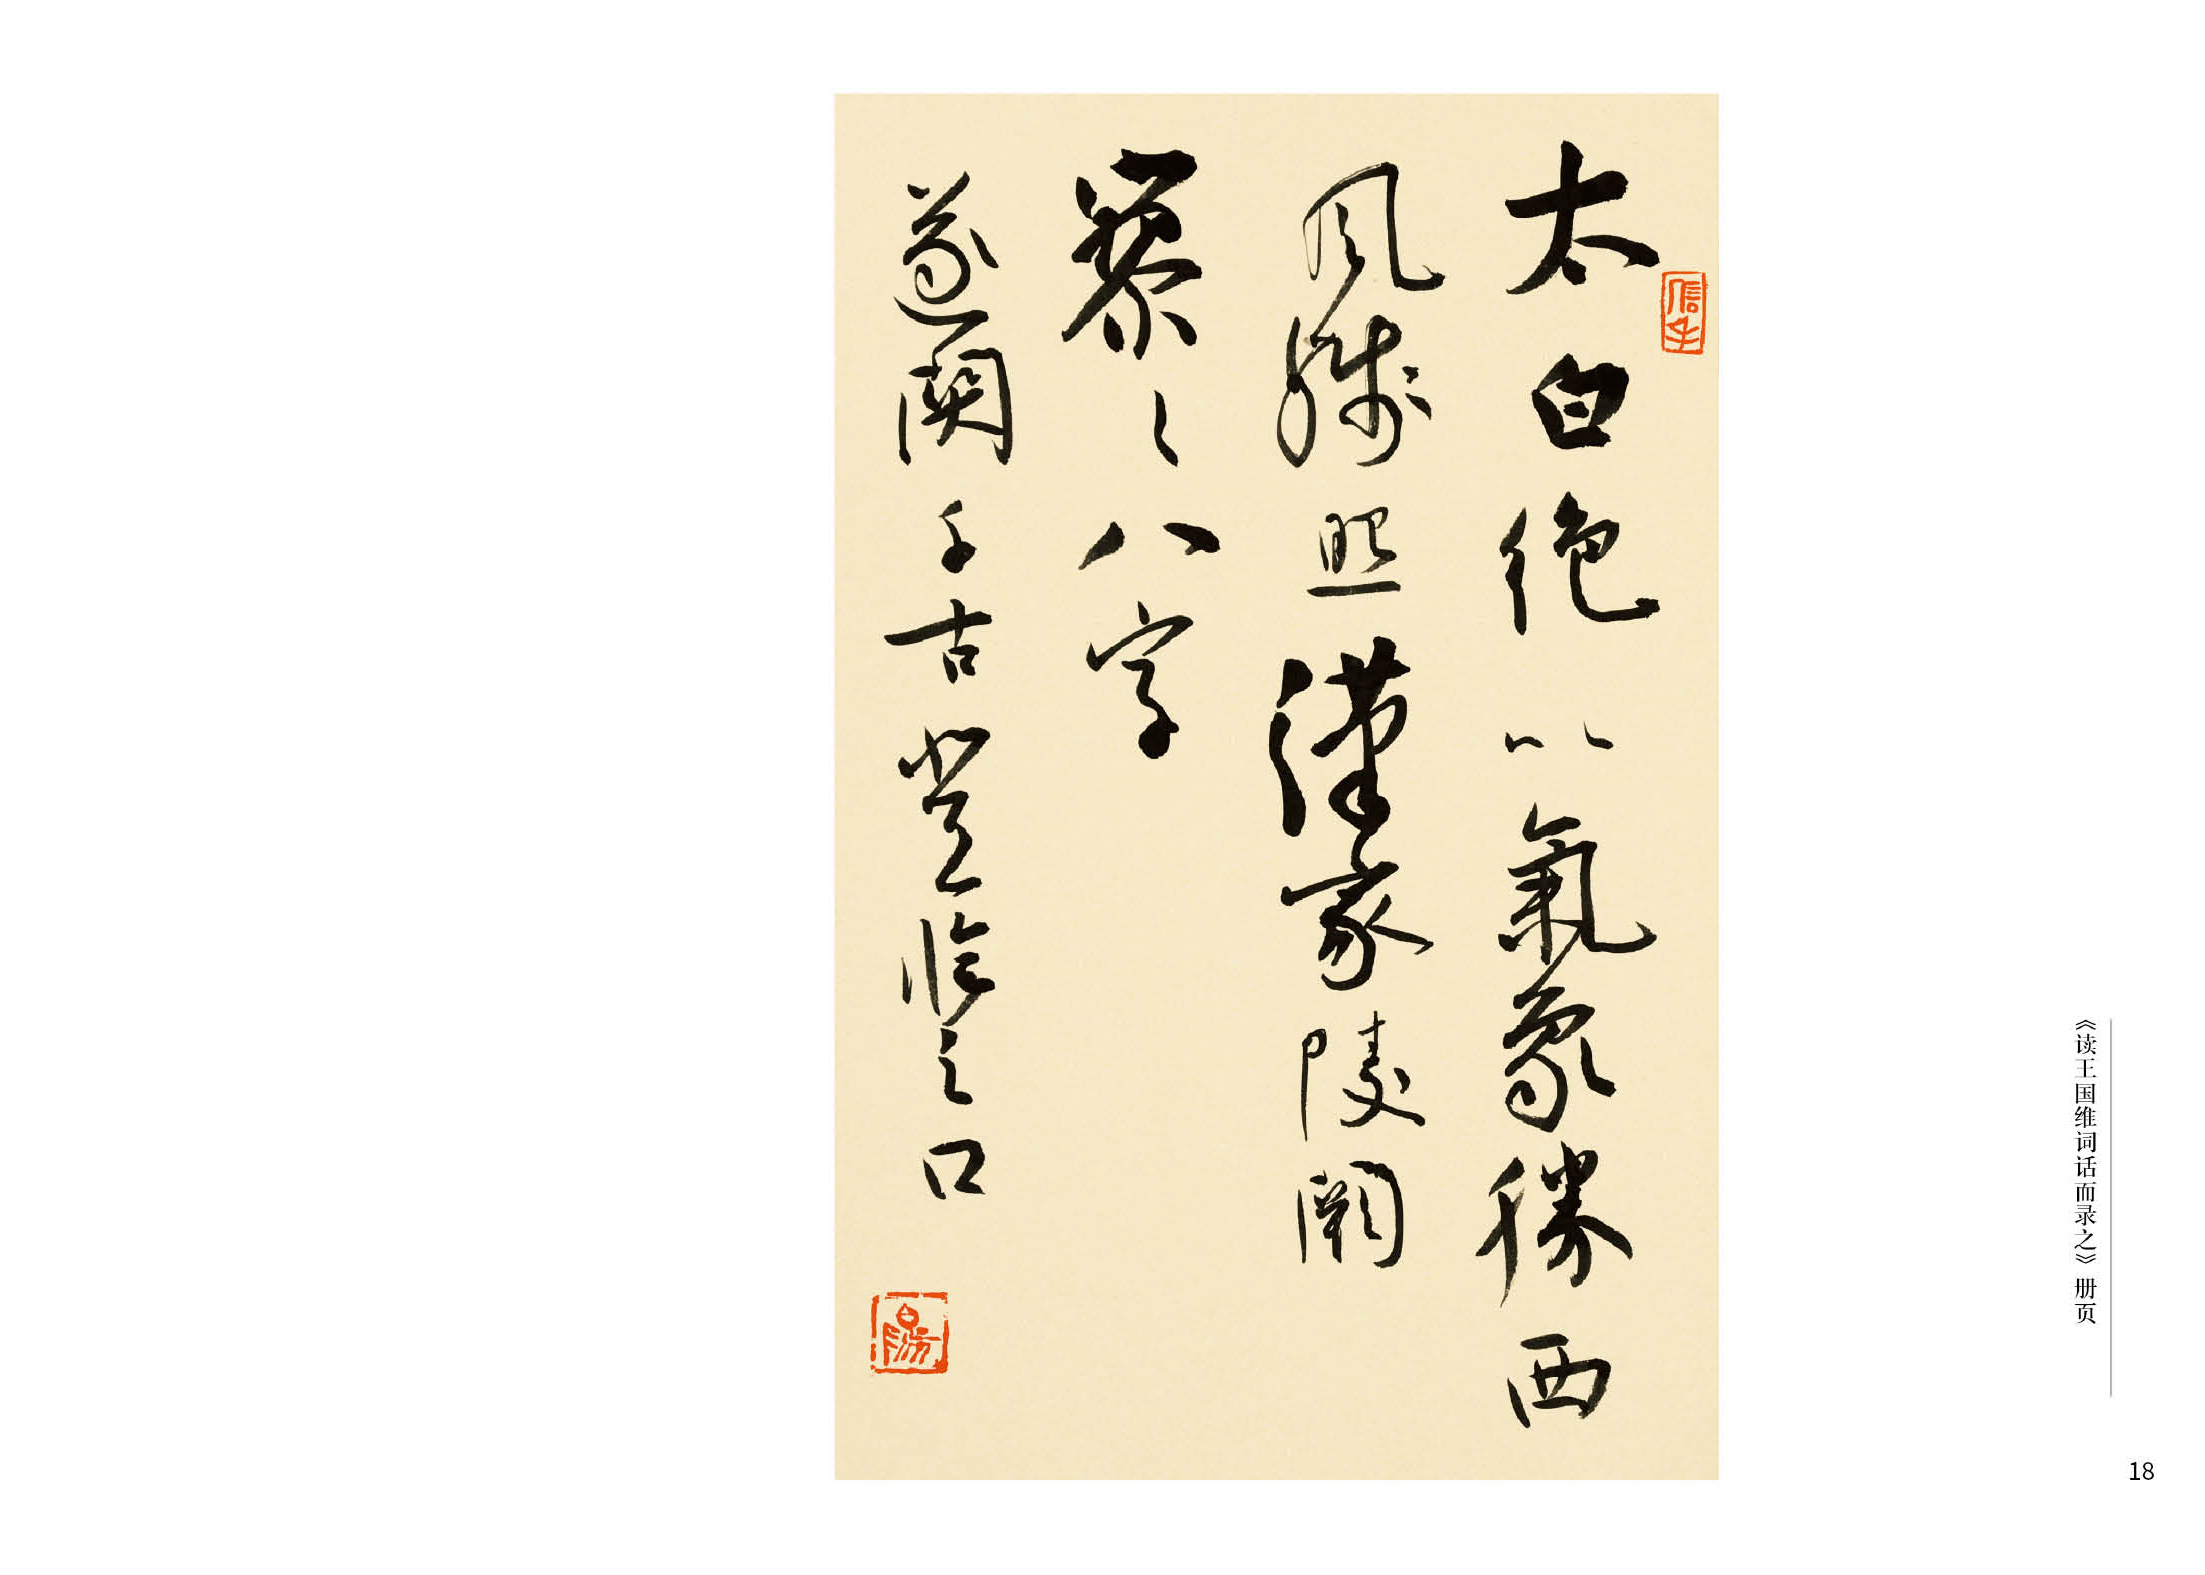 太白絶以氣象勝西
風殘照漢家陵闕
寥〻八字
遂関千古登臨之口
信手
《读王国维词话而录之》册页
18